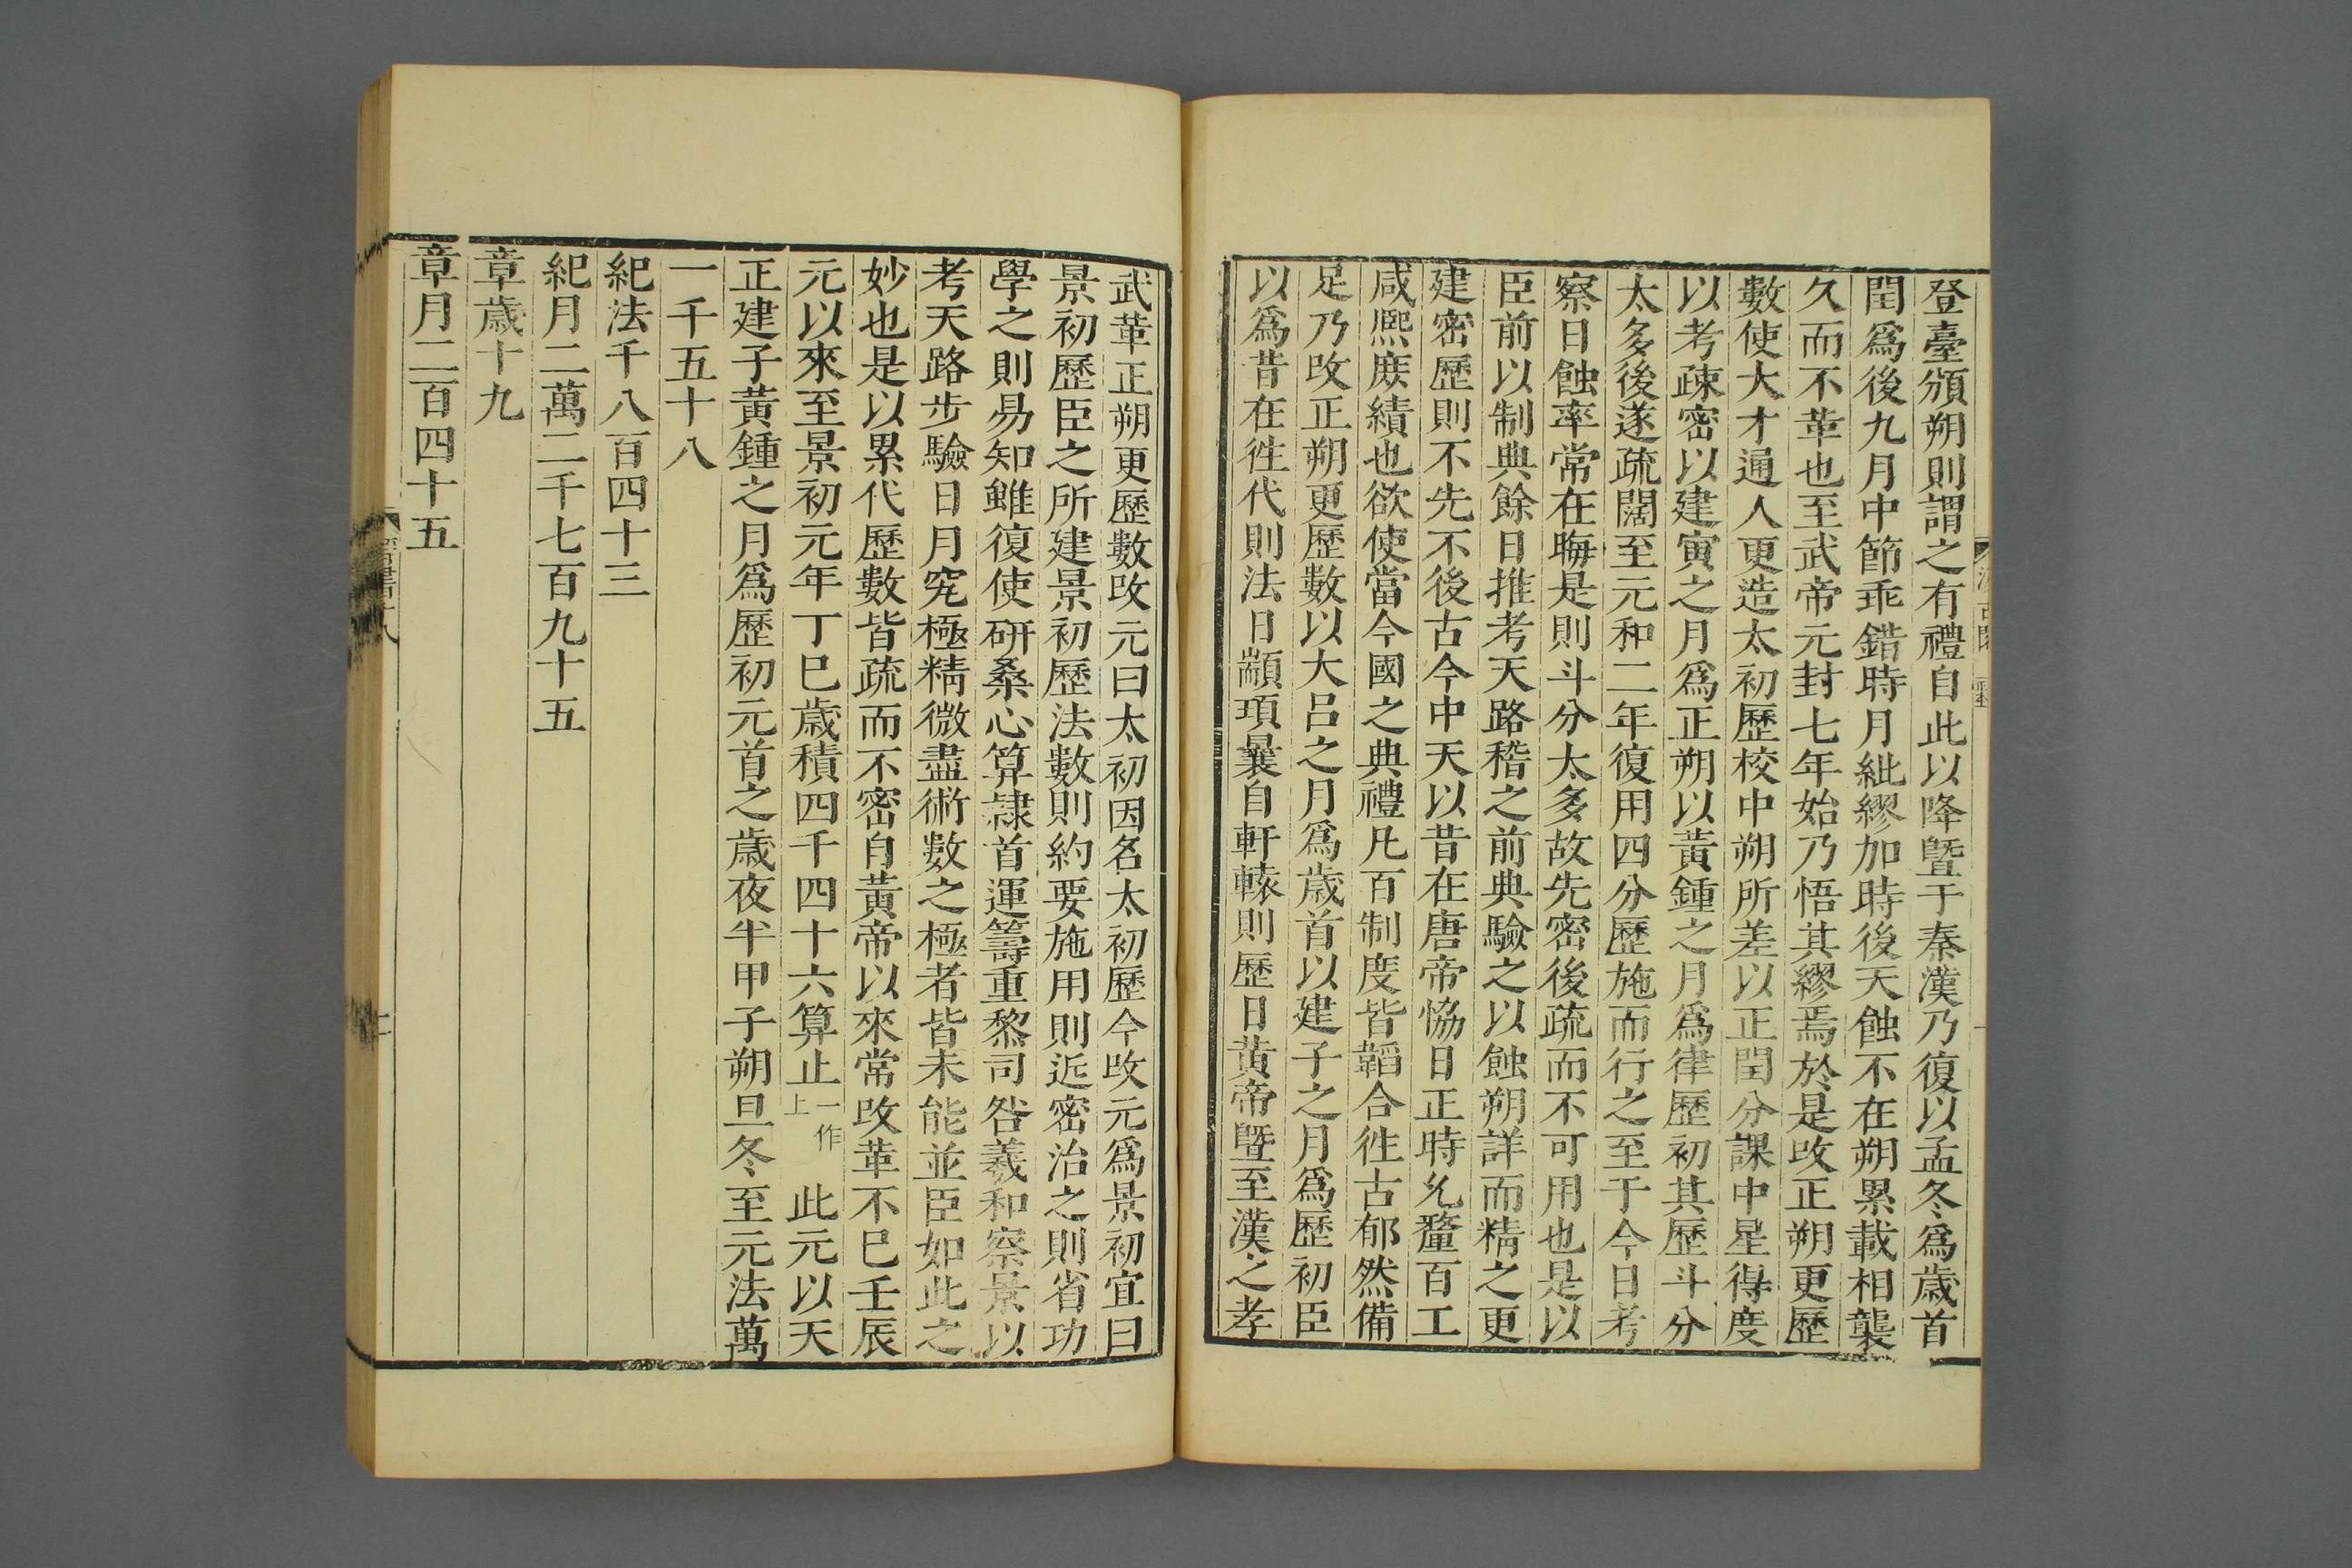 登臺頒朔則謂之有禮自此以降曁于秦漢乃復以孟冬爲歲首
閏爲後九月中節乖錯時月紕繆加時後天蝕不在朔累載相襲
久而不革也至武帝元封七年始乃悟其繆焉於是改正朔更歷
數使大才通人更造太初歷校中朔所差以正閏分課中星得度
以考疎密以建寅之月爲正朔以黃鍾之月爲律歷初其歷斗分
太多後遂疏闊至元和二年復用四分歷施而行之至于今日考
察日蝕率常在晦是則斗分太多故先密後疏而不可用也是以
臣前以制典餘日推考天路稽之前典驗之以蝕朔詳而精之更
建密歷則不先不後古今中天以昔在唐帝恊日正時允釐百工
咸熙庶績也欲使當今國之典禮凡百制度皆韜合徃古郁然備
足乃改正朔更歷數以大呂之月爲歲首以建子之月爲歷初臣
以爲昔在徃代則法日顓頊曩自軒轅則歷日黃帝曁至漢之孝
武革正朔更歷數改元曰太初因名太初歷今改元爲景初宜曰
景初歷臣之所建景初歷法數則約要施用則近密治之則省功
學之則易知雖復使研桑心算隷首運籌重黎司晷羲和察景以
考天路步驗日月究極精微盡術數之極者皆未能並臣如此之
妙也是以累代歷數皆疏而不密自黃帝以來常改革不巳壬辰
元以來至景初元年丁巳歲積四千四十六算止一作上此元以天
正建子黃鍾之月爲歷初元首之歲夜半甲子朔旦冬至元法萬
一千五十八
紀法千八百四十三
紀月二萬二千七百九十五
章歲十九
章月二百四十五
晉書十八
二